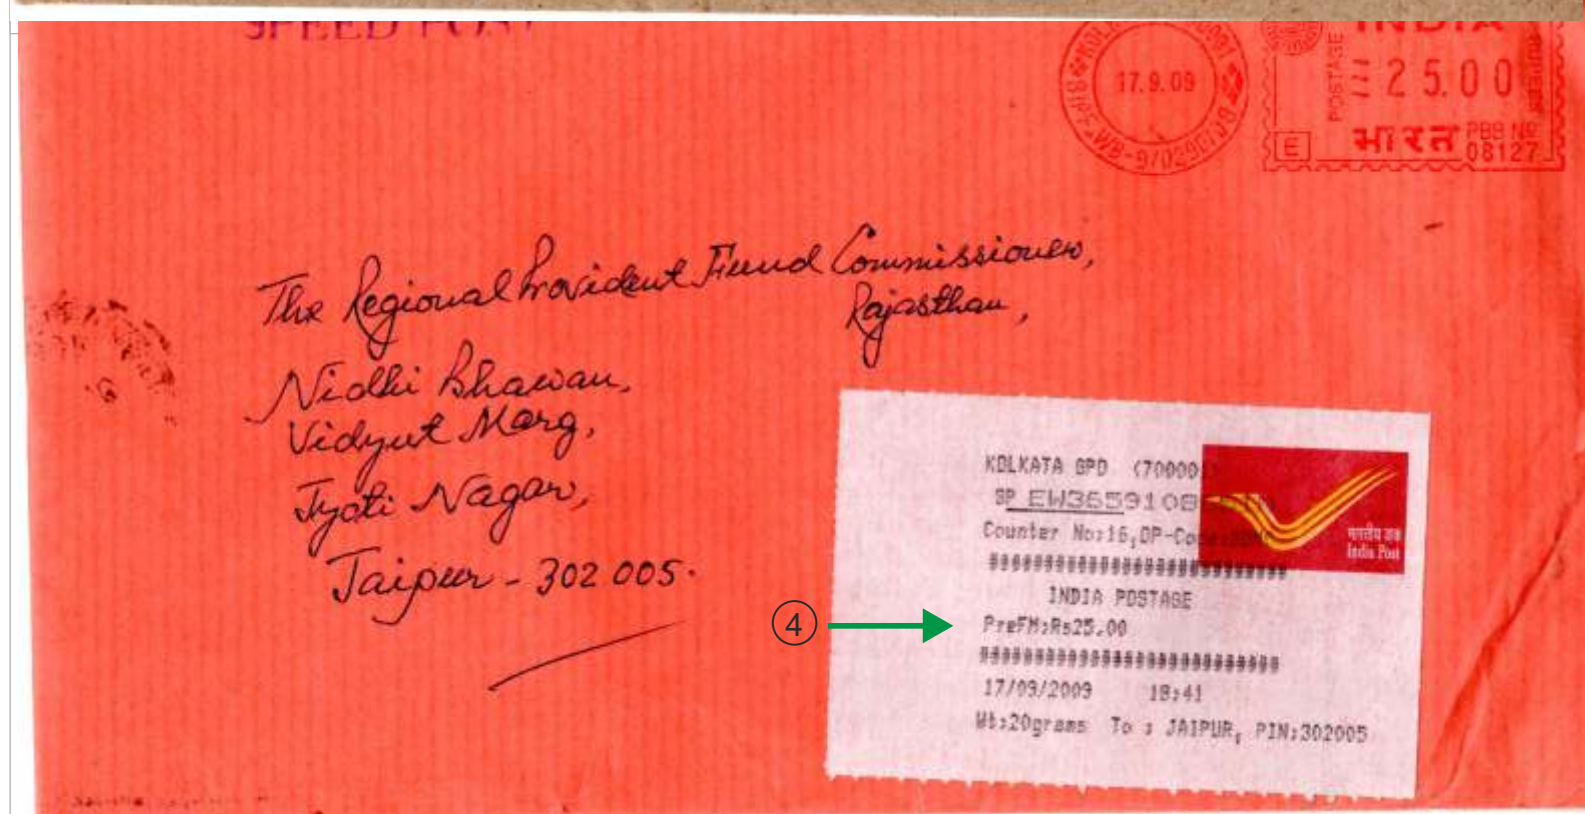 SPEED POST
17.9.09
INDIA
POSTAGE
25.00
भारत
PBB NO
08127
E
The Regional Provident Fund Commissioner,
Rajasthan,
Nidhi Bhawan,
Vidyut Marg,
Jyoti Nagar,
Jaipur - 302 005.
KOLKATA GPO (70000
SP EW3659108
Counter No:16,OP-Co
भारतीय डाक
India Post
INDIA POSTAGE
4
PreFM:Rs25.00
17/09/2009 18:41
Wt:20grams To : JAIPUR, PIN:302005